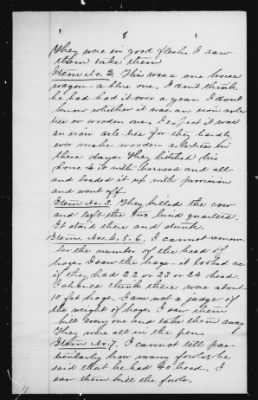 8
They were in good flesh. I saw
them take them
Item No. 2. This was a one horse
wagon - a blue one. I don't think
he had had it over a year. I don't
know whether it was an iron axle-
tree or wooden one, I expect it was
an iron axle-tree for they hardly
ever make wooden axletrees in
these days. They hitched his
horse to it with harness and all
and loaded it up with provision
and went off.
Item No. 3. They killed the cow
and left the two hind quarters.
It staid there and stunk.
Items Nos. 4. 5. & 6. I cannot remem-
ber the number of the head of
hogs. I saw the hogs - it looked as
if they had 22 or 23 or 24 head.
I think there was about
10 fat hogs. I am not a judge of
the weight of hogs. I saw them
kill every one and take them away
They were all in the pen.
Item No. 7. I cannot tell par-
ticularly how many fowls he
said that he had 60 head. I
saw them kill the fowls.